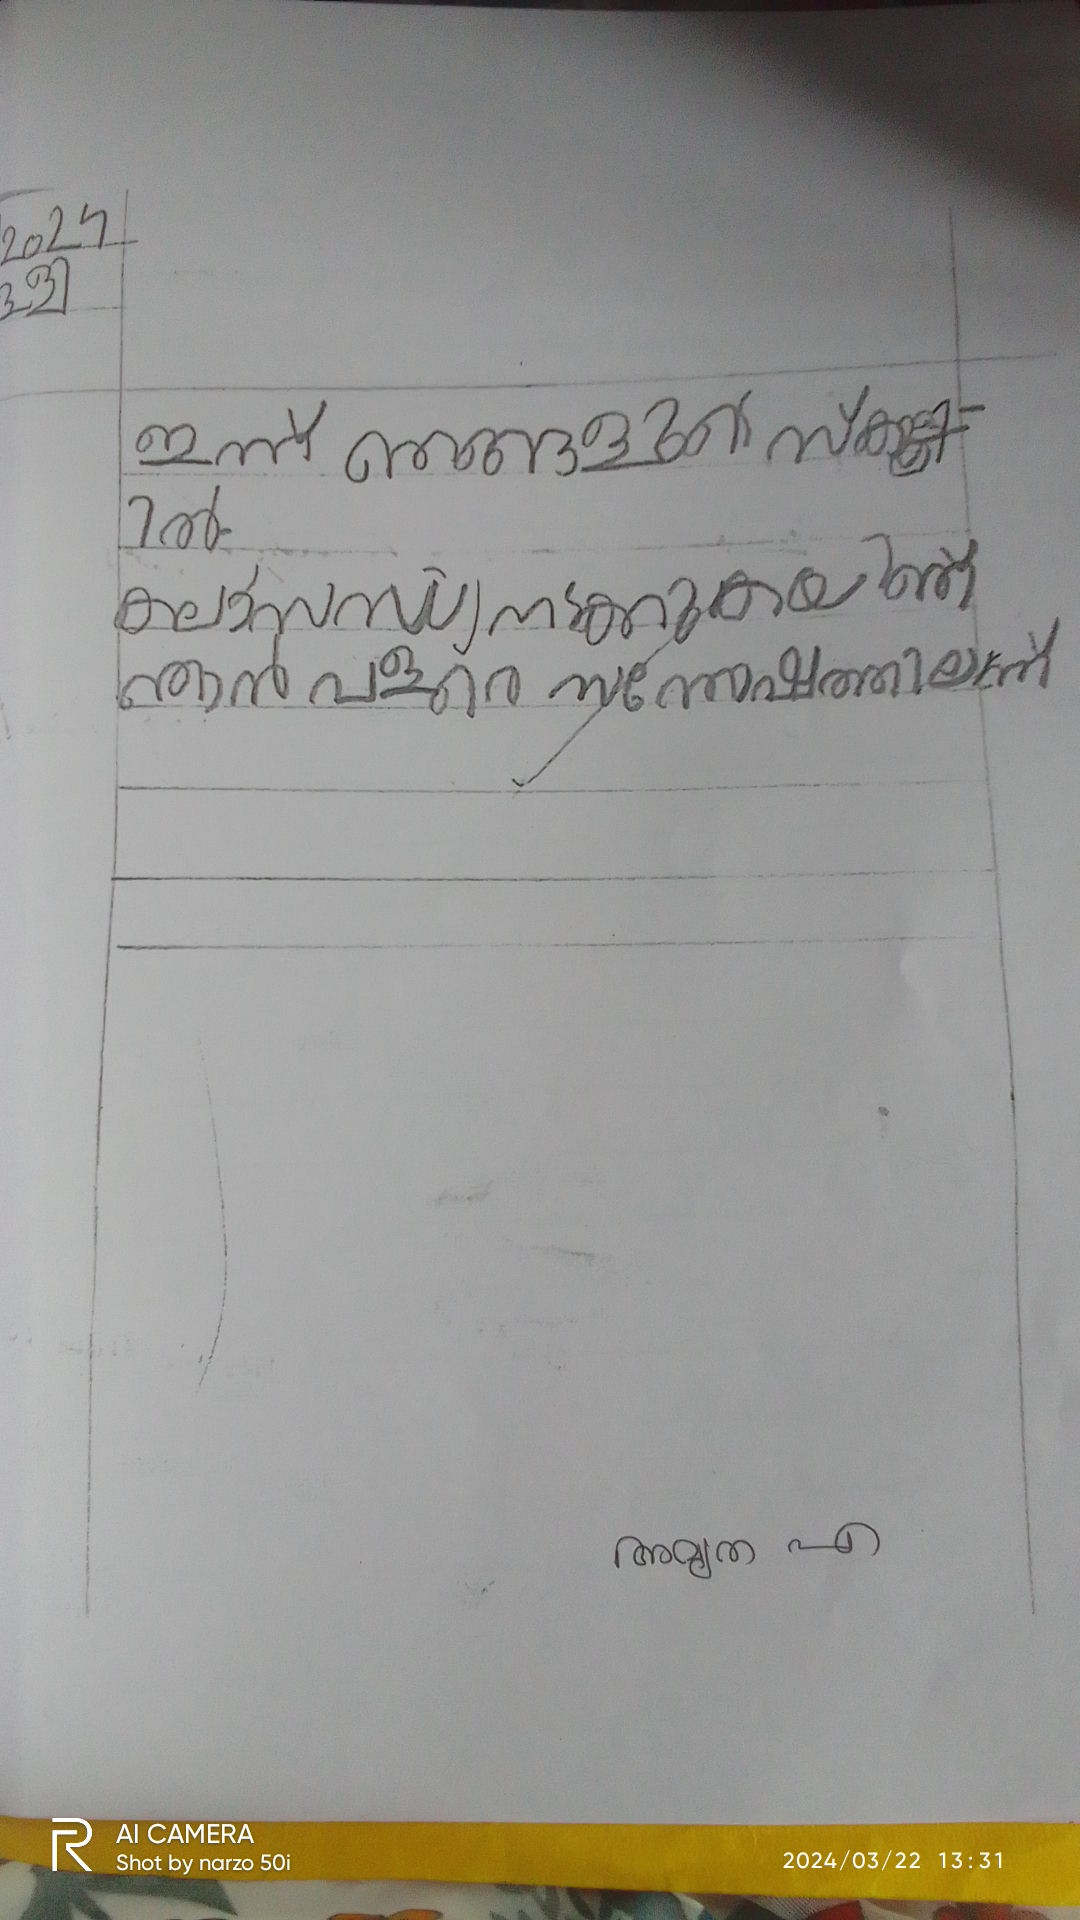 2024
ഇന്ന് ഞങ്ങളുടെ സ്കൂള
ിൽ
നടക്കുകയാണ്
ഞാൻ വളരെ സന്തോഷത്തിലാണ്
അമൃത എ
AI CAMERA
Shot by narzo 50i
2024/03/22 13:31